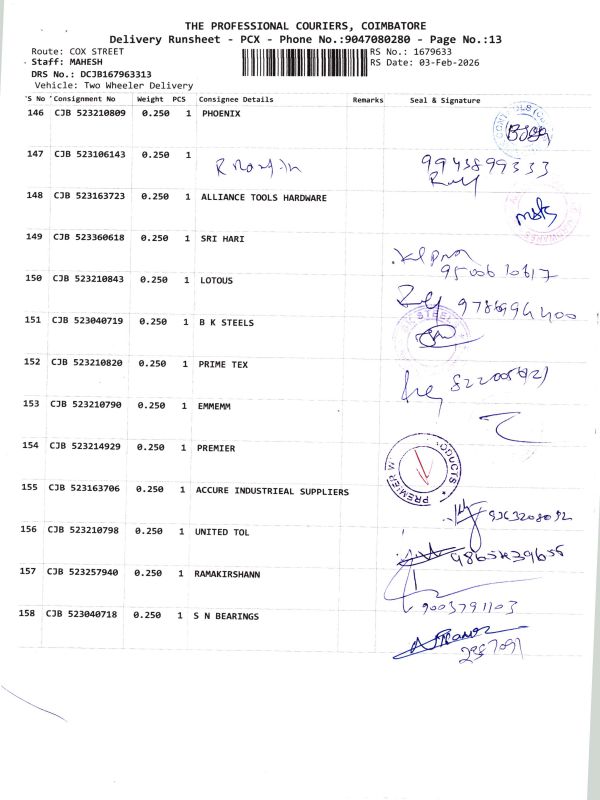 THE PROFESSIONAL COURIERS, COIMBATORE
Delivery Runsheet - PCX - Phone No.:9047080280 - Page No.:13
Route: COX STREET
RS No.: 1679633
Staff: MAHESH
RS Date: 03-Feb-2026
DRS No.: DCJB167963313
Vehicle: Two Wheeler Delivery
S No Consignment No Weight PCS Consignee Details Remarks Seal & Signature
146 CJB 523210809 0.250 1 PHOENIX
147 CJB 523106143 0.250 1
9943899333
148 CJB 523163723 0.250 1 ALLIANCE TOOLS HARDWARE
149 CJB 523360618 0.250 1 SRI HARI
150 CJB 523210843 0.250 1 LOTOUS
151 CJB 523040719 0.250 1 B K STEELS
152 CJB 523210820 0.250 1 PRIME TEX
153 CJB 523210790 0.250 1 EMMEMM
154 CJB 523214929 0.250 1 PREMIER
155 CJB 523163706 0.250 1 ACCURE INDUSTRIEAL SUPPLIERS
156 CJB 523210798 0.250 1 UNITED TOL
157 CJB 523257940 0.250 1 RAMAKIRSHANN
9003791103
158 CJB 523040718 0.250 1 S N BEARINGS